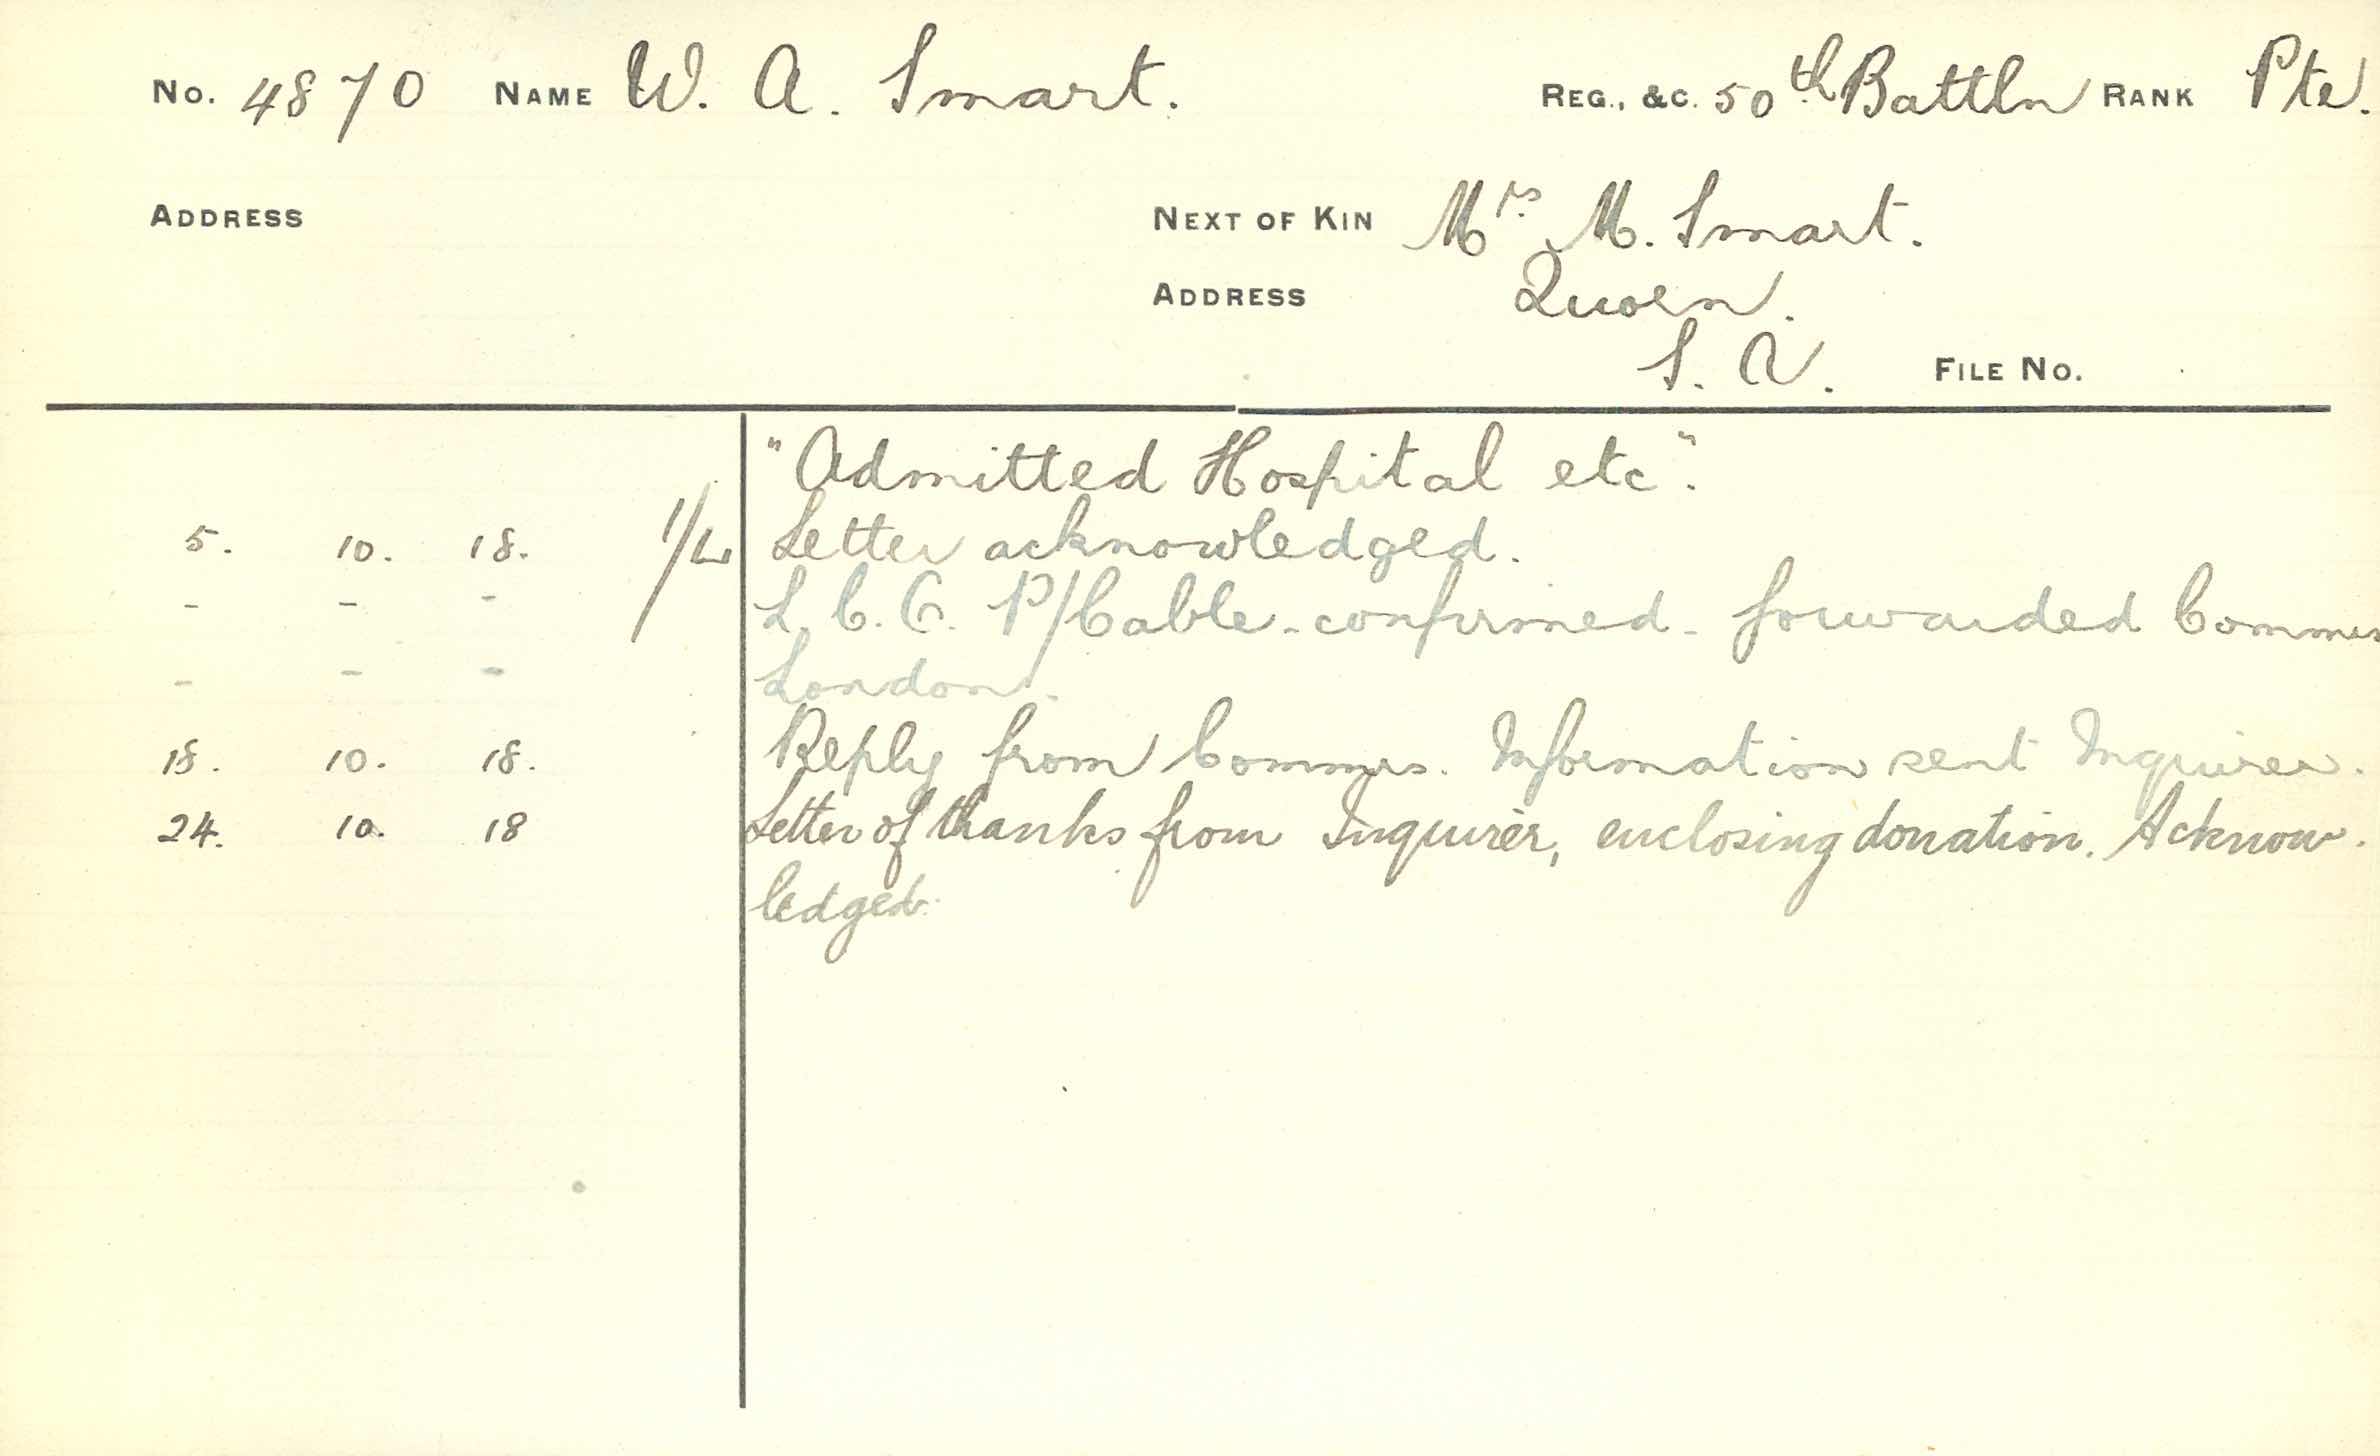 No. 4870 NAME W. A. Smart. REG., &C. 50th Battln RANK Pte.
ADDRESS NEXT OF KIN Mrs M. Smart.
ADDRESS Quorn.
S. A. FILE NO.
"Admitted Hospital etc".
5. 10. 18. Letter acknowledged.
- - - L.C.C. P/Cable - confirmed - forwarded Commrs
- - - London.
18. 10. 18. Reply from Commrs. Information sent Inquirer.
24. 10. 18 Letter of thanks from Inquirer, enclosing donation. Acknow-
ledged.